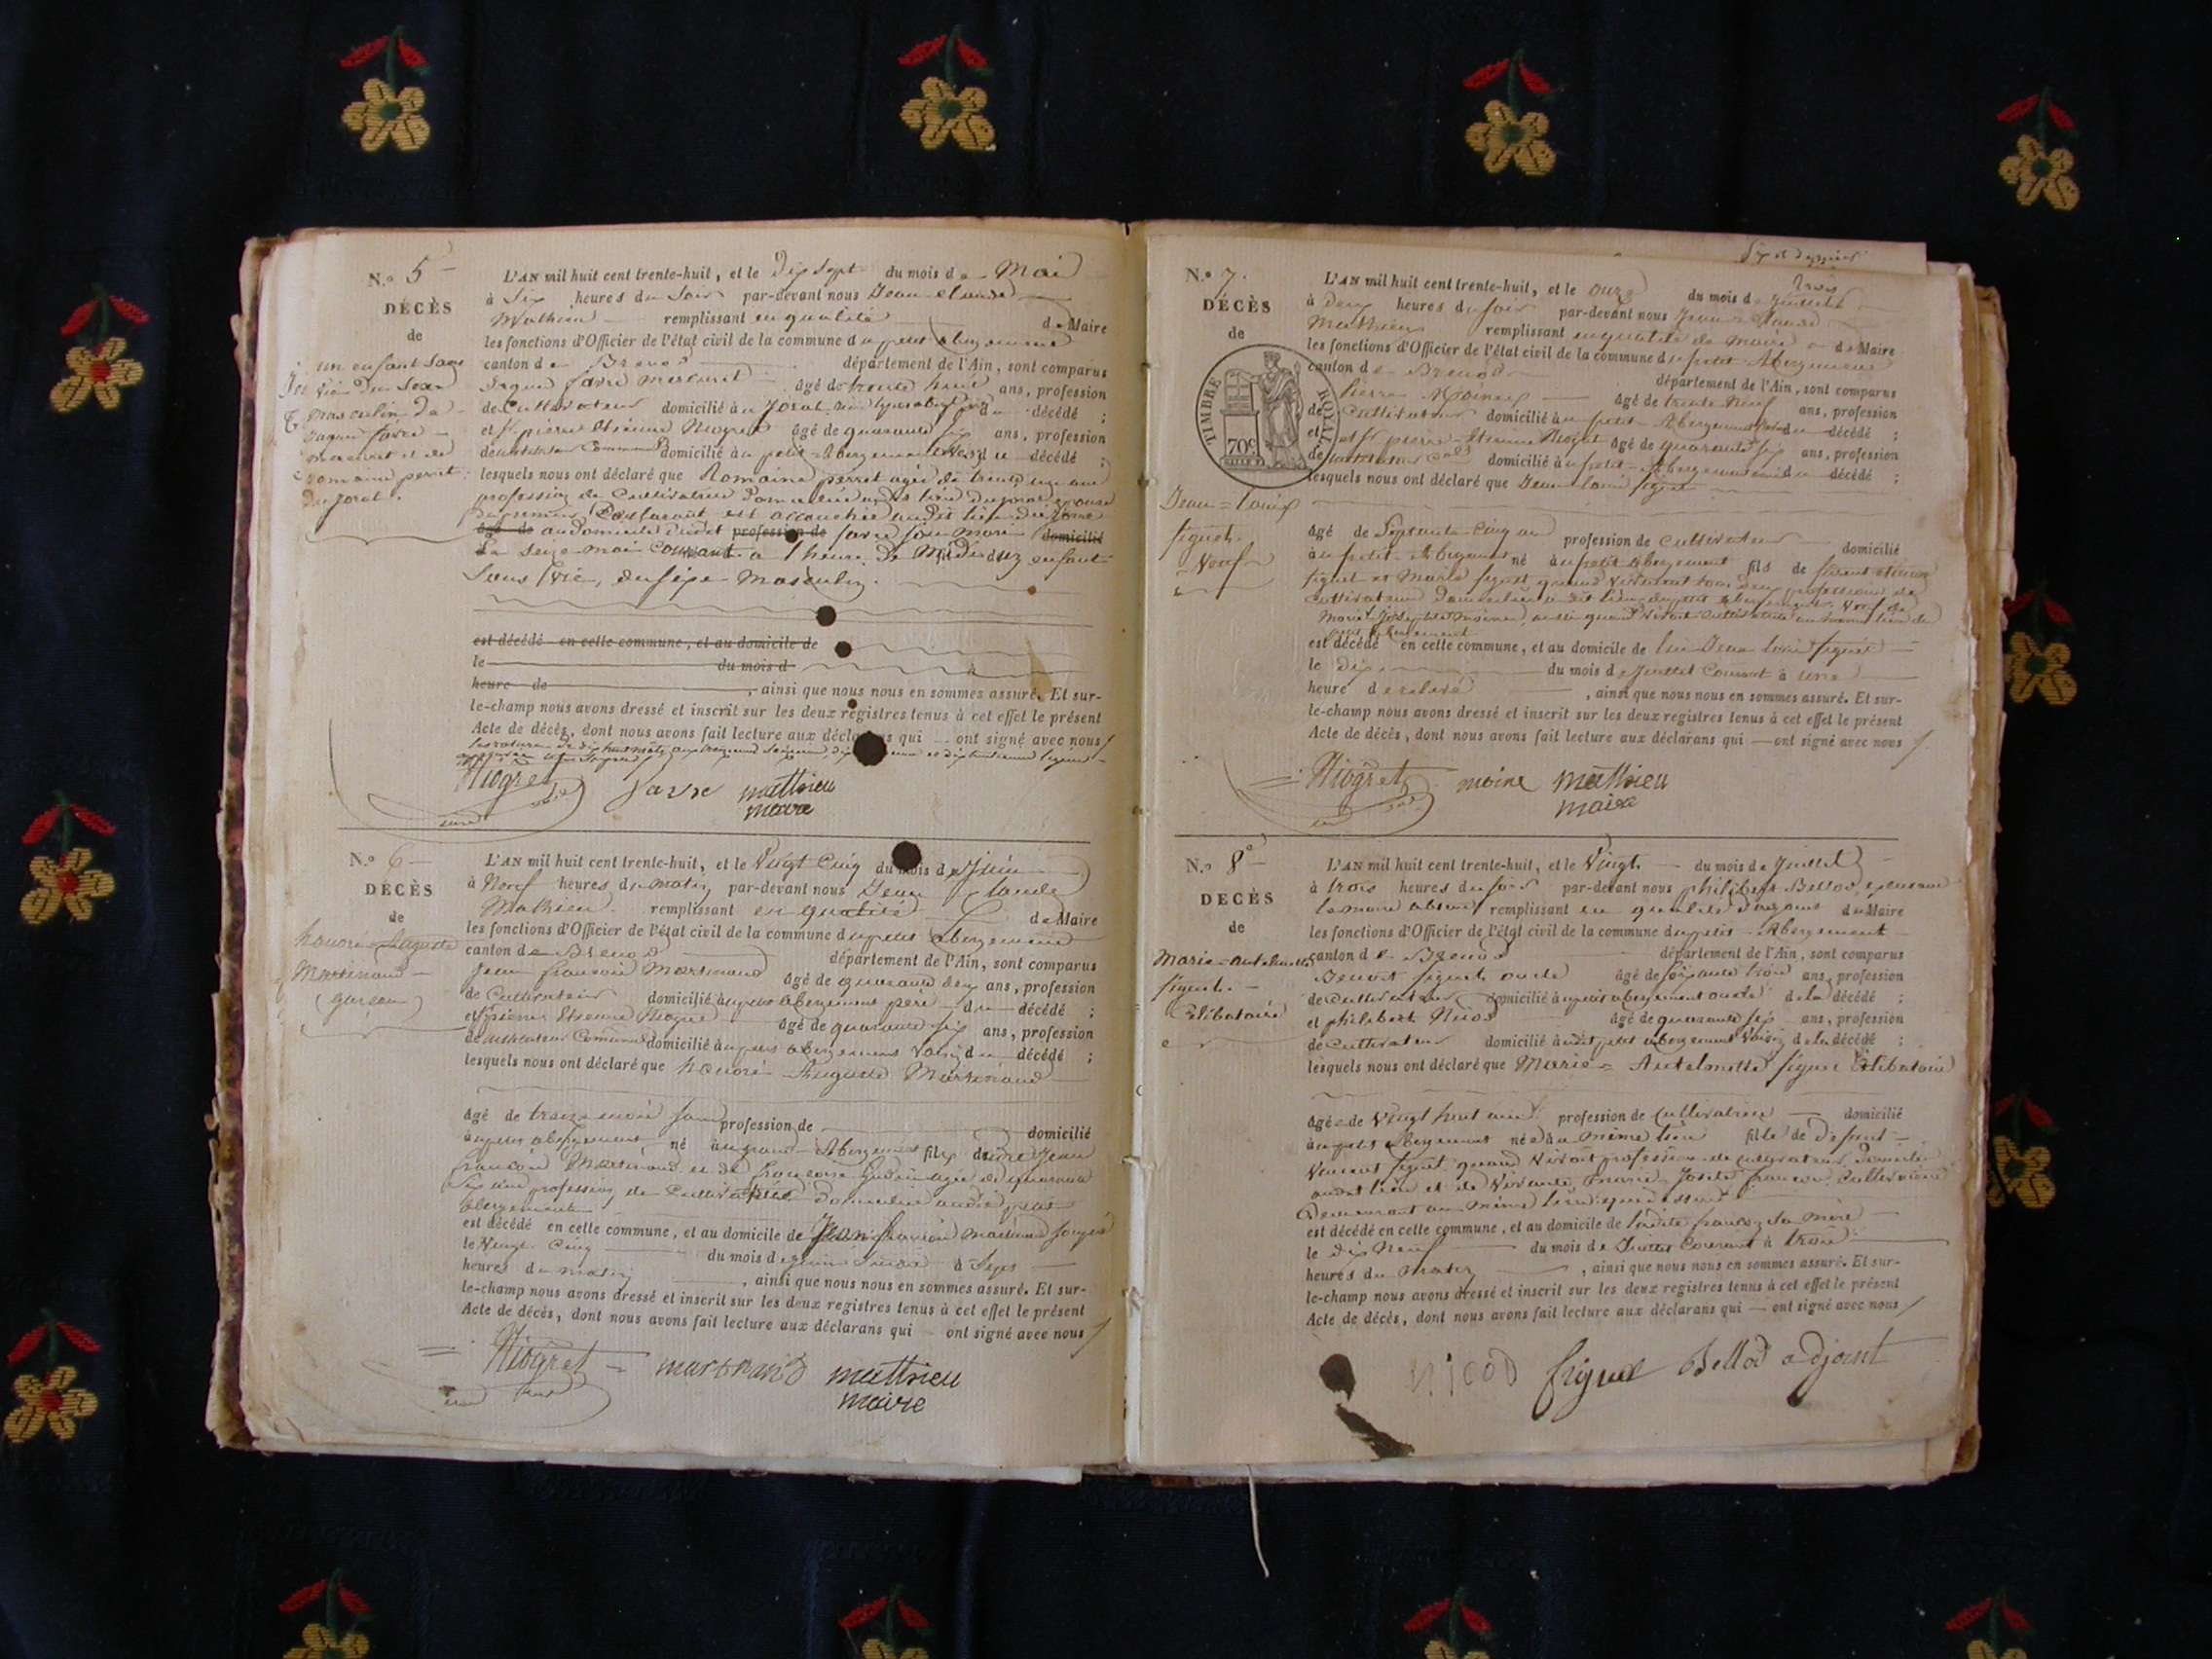 N.º 5
DÉCÈS
de
un enfant sans
vie du sexe
masculin de
jaques favre
mercuret et de
romaine perret
du jorat.
L'AN mil huit cent trente-huit, et le Dix sept du mois de Mai
à Six heures du Soir par-devant nous Jean claude
Mathieu remplissant en qualité de Maire
les fonctions d'Officier de l'état civil de la commune du petit abergement
canton de Brenod département de l'Ain, sont comparus
Jaques favre mercuret âgé de trente huit ans, profession
de Cultivateur domicilié au Jorat décédé ;
et Sr. pierre Etienne Niogret âgé de quarante six ans, profession
domicilié au petit-Abergement décédé ;
lesquels nous ont déclaré que Romaine perret agée de trente
profession de Cultivatrice
est accouchée
âgé de au domicile dudit profession de favre son mari domicilié
le seize mai courant a 1 heure de enfant
Sans vie, du sexe Masculin.
est décédé en cette commune, et au domicile de
le du mois d à
heure de , ainsi que nous nous en sommes assuré. Et sur-
le-champ nous avons dressé et inscrit sur les deux registres tenus à cet effet le présent
Acte de décès, dont nous avons fait lecture aux qui ont signé avec nous
Niogret favre matthieu
maire
N.º 6
DÉCÈS
de
honoré-Auguste
Martinand
(garçon)
L'AN mil huit cent trente-huit, et le Vingt Cinq du mois de Juin
à Neuf heures du matin par-devant nous Jean Claude
Mathieu remplissant en qualité de Maire
les fonctions d'Officier de l'état civil de la commune du petit abergement
canton de Brenod département de l'Ain, sont comparus
Jean françois Martinand âgé de quarante deux ans, profession
de Cultivateur domicilié au petit abergement père du décédé ;
et Sr pierre Etienne Niogret âgé de quarante six ans, profession
domicilié au petit abergement voisin du décédé ;
lesquels nous ont déclaré que honoré Auguste Martinand
âgé de treize mois sans profession de domicilié
au petit abergement né au grand-Abergement fils dudit Jean
françois Martinand et de françoise agée de quarante
six ans profession de Cultivatrice domiciliée audit petit
abergement
est décédé en cette commune, et au domicile de Jean françois martinand son père
le Vingt Cinq du mois de juin à Sept
heures du matin , ainsi que nous nous en sommes assuré. Et sur-
le-champ nous avons dressé et inscrit sur les deux registres tenus à cet effet le présent
Acte de décès, dont nous avons fait lecture aux déclarans qui ont signé avec nous
Niogret martinand matthieu
maire
N.º 7.
DÉCÈS
de
TIMBRE ROYAL
70c
Jean-Louis
figuet.
Veuf
L'AN mil huit cent trente-huit, et le onze du mois de Juillet
à deux heures du soir par-devant nous Jean-Claude
Mathieu remplissant en qualité de maire de Maire
les fonctions d'Officier de l'état civil de la commune du petit-Abergement
canton de Brenod département de l'Ain, sont comparus
pierre Moine âgé de trente neuf ans, profession
de Cultivateur domicilié au petit-Abergement décédé ;
et Sr pierre-Etienne Niogret âgé de quarante six ans, profession
domicilié au petit-Abergement décédé ;
lesquels nous ont déclaré que Jean-Louis figuet
âgé de Septante Cinq ans profession de cultivateur domicilié
au petit-Abergement né au petit Abergement fils de
figuet et Marie figuet quand vivaient tous deux profession de
Cultivateurs veuf de
est décédé en cette commune, et au domicile de lui Jean Louis figuet
le dix du mois de Juillet Courant à une
heure , ainsi que nous nous en sommes assuré. Et sur-
le-champ nous avons dressé et inscrit sur les deux registres tenus à cet effet le présent
Acte de décès, dont nous avons fait lecture aux déclarans qui ont signé avec nous
Niogret moine matthieu
maire
N.º 8
DÉCÈS
de
Marie-antelmette
figuet.
Célibataire
L'AN mil huit cent trente-huit, et le Vingt du mois de Juillet
à trois heures du soir par-devant nous philibert Bellod
le maire absent remplissant en qualité d'adjoint de Maire
les fonctions d'Officier de l'état civil de la commune du petit-Abergement
canton de Brenod département de l'Ain, sont comparus
Benoit figuet oncle âgé de soixante trois ans, profession
de Cultivateur domicilié au petit abergement oncle de la décédé ;
et philibert Nicod âgé de quarante six ans, profession
de Cultivateur domicilié audit petit abergement voisin de la décédé ;
lesquels nous ont déclaré que Marie Antelmette figuet Célibataire
âgée de Vingt huit ans profession de Cultivatrice domicilié
au petit Abergement née au même lieu fille de défunt
figuet quand vivait profession de cultivateur domicilié
audit lieu et de vivante françon Cultivatrice
Demeurant au même lieu
est décédé en cette commune, et au domicile de ladite françon sa mère
le dix Neuf du mois de Juillet Courant à trois
heures du matin , ainsi que nous nous en sommes assuré. Et sur-
le-champ nous avons dressé et inscrit sur les deux registres tenus à cet effet le présent
Acte de décès, dont nous avons fait lecture aux déclarans qui ont signé avec nous
NICOD figuet Bellod adjoint